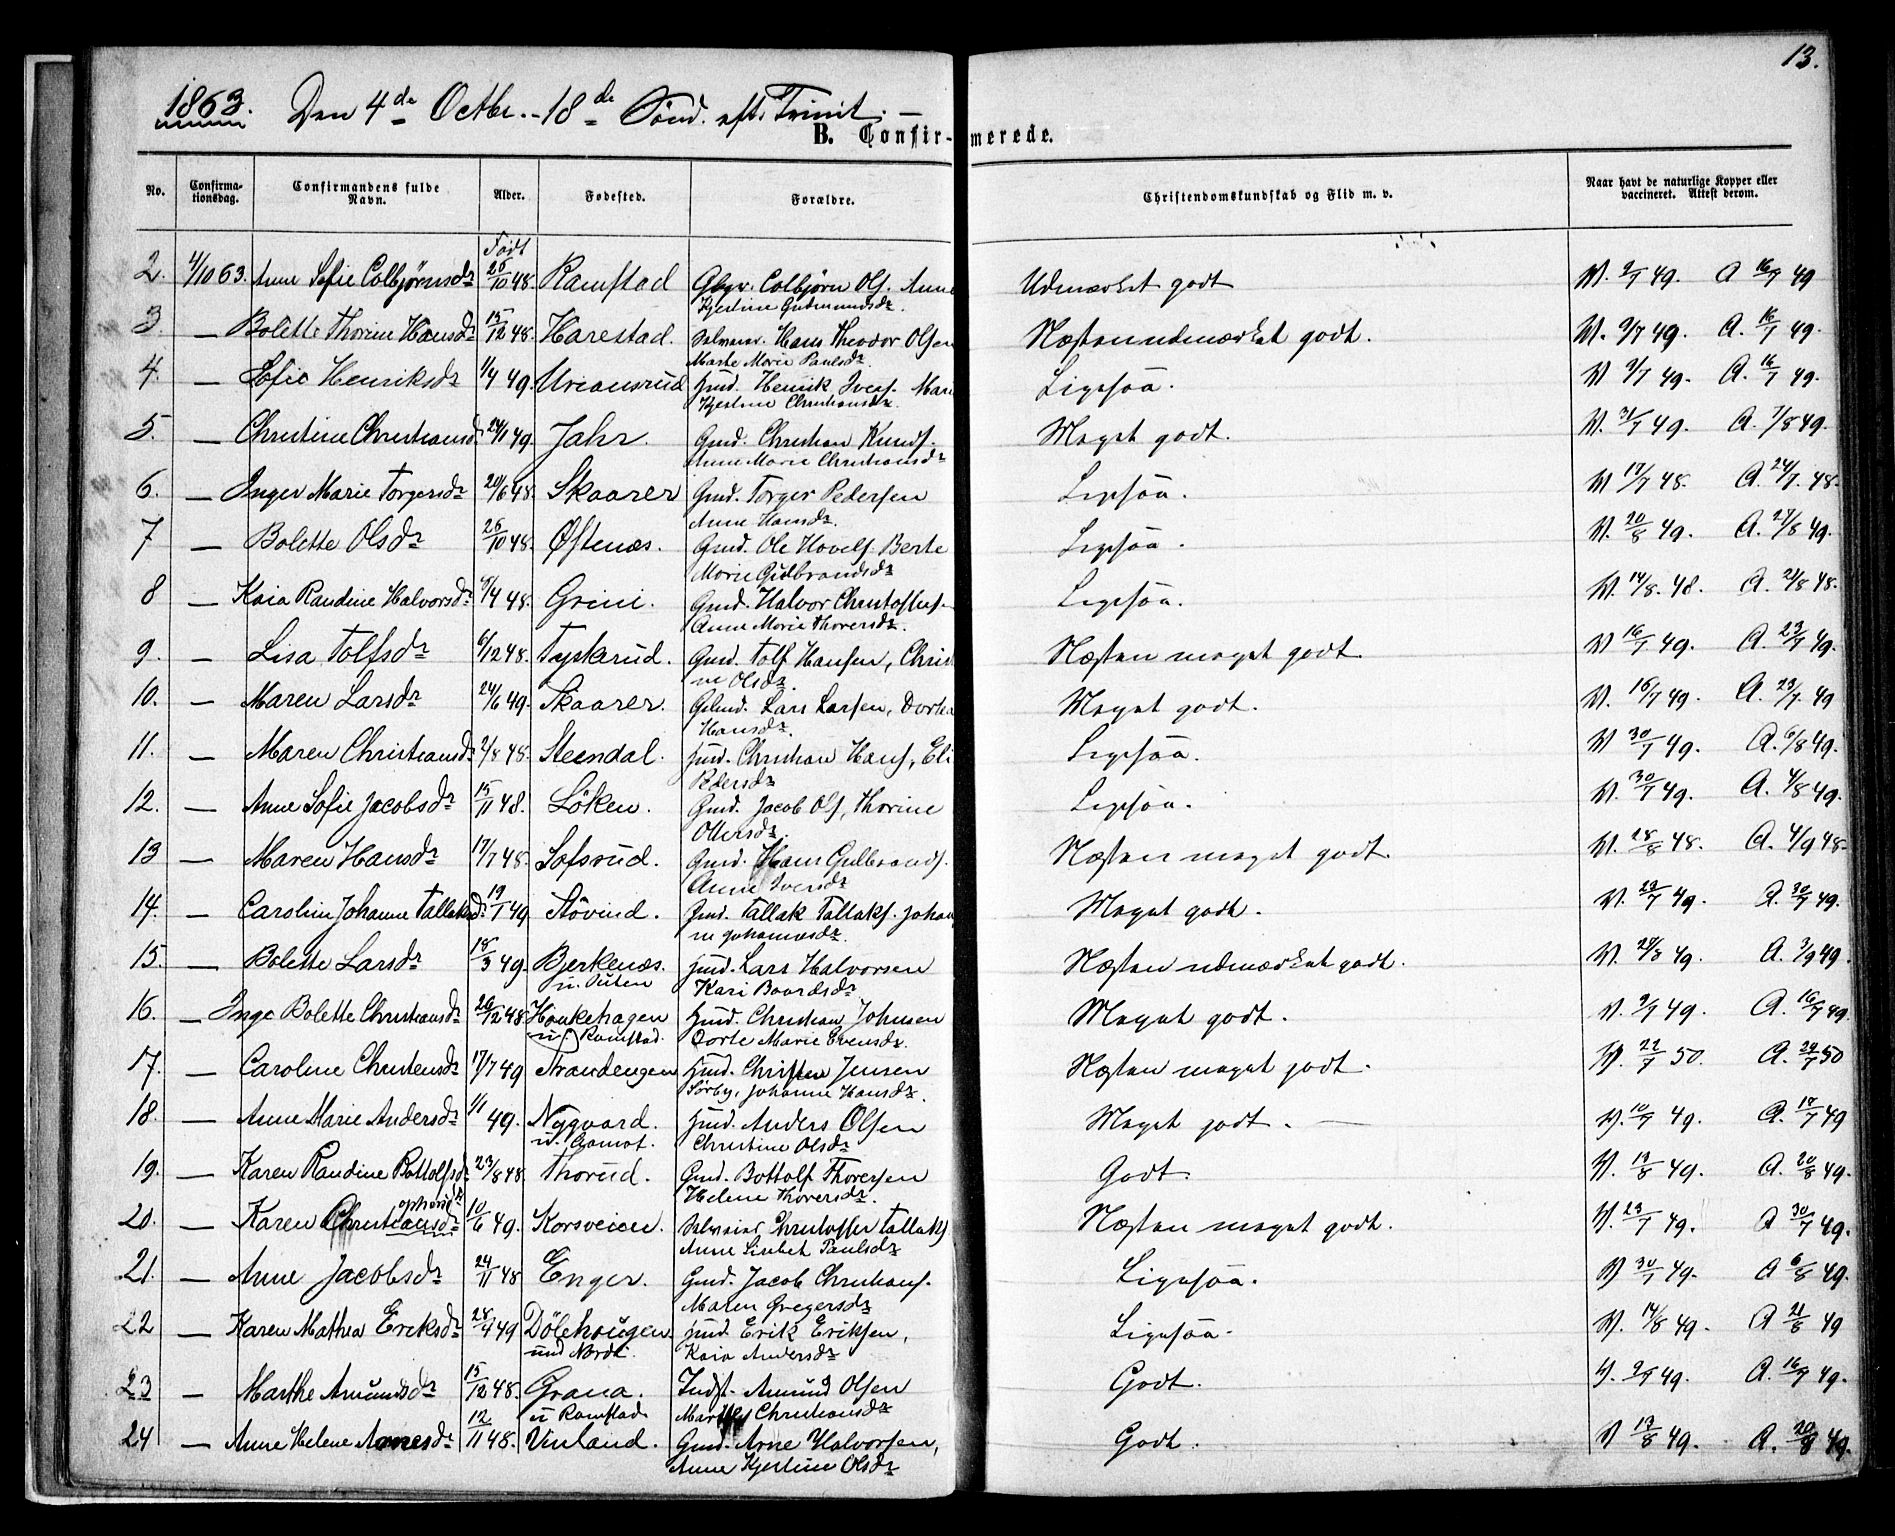 13.
1863. Den 4de Octbr. - 18de Sönd. eft. Trinit. -
B. Confirmerede.
No. Confirmationsdag. Confirmandens fulde Navn. Alder. Fødested. Forældre. Christendomskundskab og Flid m. v. Naar havt de naturlige Kopper eller vaccineret. Attest derom.
Født
2. 4/10 63. Anne Sofie Colbjörnsdr 25/10 48. Ramstad Colbjörn Ols. Anne Udmærket godt V. 9/7 49. A 16/7 49
Kjerstine Gudmundsdr.
3 — Bolette Thorine Hansdr 15/12 48. Harestad. Hans Theodor Olsen Næsten udmærket godt. V. 9/7 49. A. 16/7 49.
Marthe Marie Paulsdr
4. — Sofie Henriksdr 1/4 49. Uriansrud Hmd. Henrik Ivers. Mari Ligesaa. V 9/7 49. A. 16/7 49.
Kjerstine Christiansdr.
5. — Christine Christiansd 24/1 49. Jahr. Gmd. Christian Knuds. Meget godt. V. 31/7 49. A. 7/8 49.
Anne Marie Christiansdr
6. — Inger Marie Torgersdr 20/6 48. Skaarer Gmd. Torger Pedersen Ligesaa. V 17/7 48. A. 24/7. 48.
Anne Hansdr.
7 — Bolette Olsdr 26/10 48. Østenæs. Gmd. Ole Hovels. Berte Ligesaa. V. 20/8 49. A. 27/8 49.
Marie Gulbrandsdr
8 — Kaia Randine Halvorsdr /4 48. Grini. Gmd. Halvor Christoffers. Ligesaa. V. 14/8. 48. A. 21/8 48.
Anne Marie Thorersdr.
9. — Lisa Tolfsdr 6/12 48. Tyskerud. Gmd. Tolf Hansen, Christi Næsten meget godt V 16/7 49. A. 23/7 49.
ne Olsdr.
10. — Maren Larsdr 24/6 49. Skaarer. Gmd. Lars Larsen, Dortea Meget godt. V. 16/7 49. A. 23/7. 49
Hansdr.
11. — Maren Christiansdr 2/8 48. Steendal. Hmd. Christian Hans, Eli Ligesaa. V 30/7 49. A. 6/8 49.
Pedersdr
12. — Anne Sofie Jacobsdr 15/11 48. Löken. Gmd. Jacob Ols, Thorine Ligesaa. V. 30/7 49. A. /8 49.
Ottersdr.
13 — Maren Hansdr 17/7 48. Sofsrud. Gmd. Hans Gulbrands. Næsten meget godt. V. 28/8 48. A. 4/9 48.
Anne Iversdr
14. — Caroline Johanne Tallaksdr 19/1 49. Stövind. Gmd. Tallak Tallaks. Johan Meget godt. V. 23/7 49. A. 30/7 49.
ne Johannesdr.
15. — Bolette Larsdr 18/3 49. Bjerkenæs. Hmd. Lars Halvorsen Næsten udmærket godt. V. /8 49. A. 3/9 49.
u. Kari Baardsdr
16. — Inge Bolette Christiansdr 26/12 48. Haukehagen Hmd. Christian Johnsen Meget godt. V. 9/7 49. A. 16/7 49
u. Ramstad. Dorte Marie Evensdr.
17. — Caroline Christensdr 17/7 49 Strandengen Hmd. Christen Jensen Næsten meget godt. V. 22/7 50. A. 29/7 50
Sörby, Johanne Hansdr.
18. — Anne Marie Andersdr 1/1 49. Nygaard. Hmd. Anders Olsen Meget godt. — V. 10/7 49. A. 17/7 49
u. Christine Olsdr
19. — Karen Randine Bottolfsdr 23/8 48. Thorud. Gmd. Bottolf Thoresen Godt. V. 13/8 49. A. 20/8 49.
Helene Thorersdr.
20. — Karen Christiansdr 10/6 49. Korsveien. Christoffer Tallaks Næsten meget godt. V. 23/7 49. A 30/7 49.
Anne Lisebet Paulsdr
21. — Anne Jacobsdr 24/11 48 Enger. Gmd. Jacob Christians. Ligesaa. V 30/7 49. A 6/8 49.
Maren Gregersdr
22 — Karen Mathea Eriksdr 28/4 49 Dölehaugen Hmd. Erik Eriksen, Ligesaa. V. 14/8 49. A 21/8 49
und Nordli Kaia Andersdr
23 — Marthe Amundsdr 15/12 48. Grana. Indst. Amund Olsen Godt. V. 9/7 49. A. 16/7 49.
u Ramstad. Marthe Christiansdr
24 — Anne Helene Arnesdr 12/11 48. Vinland. Gmd. Arne Halvorsen, Godt. V 13/8 49. A. 20/8 49.
Anne Kjerstine Olsdr